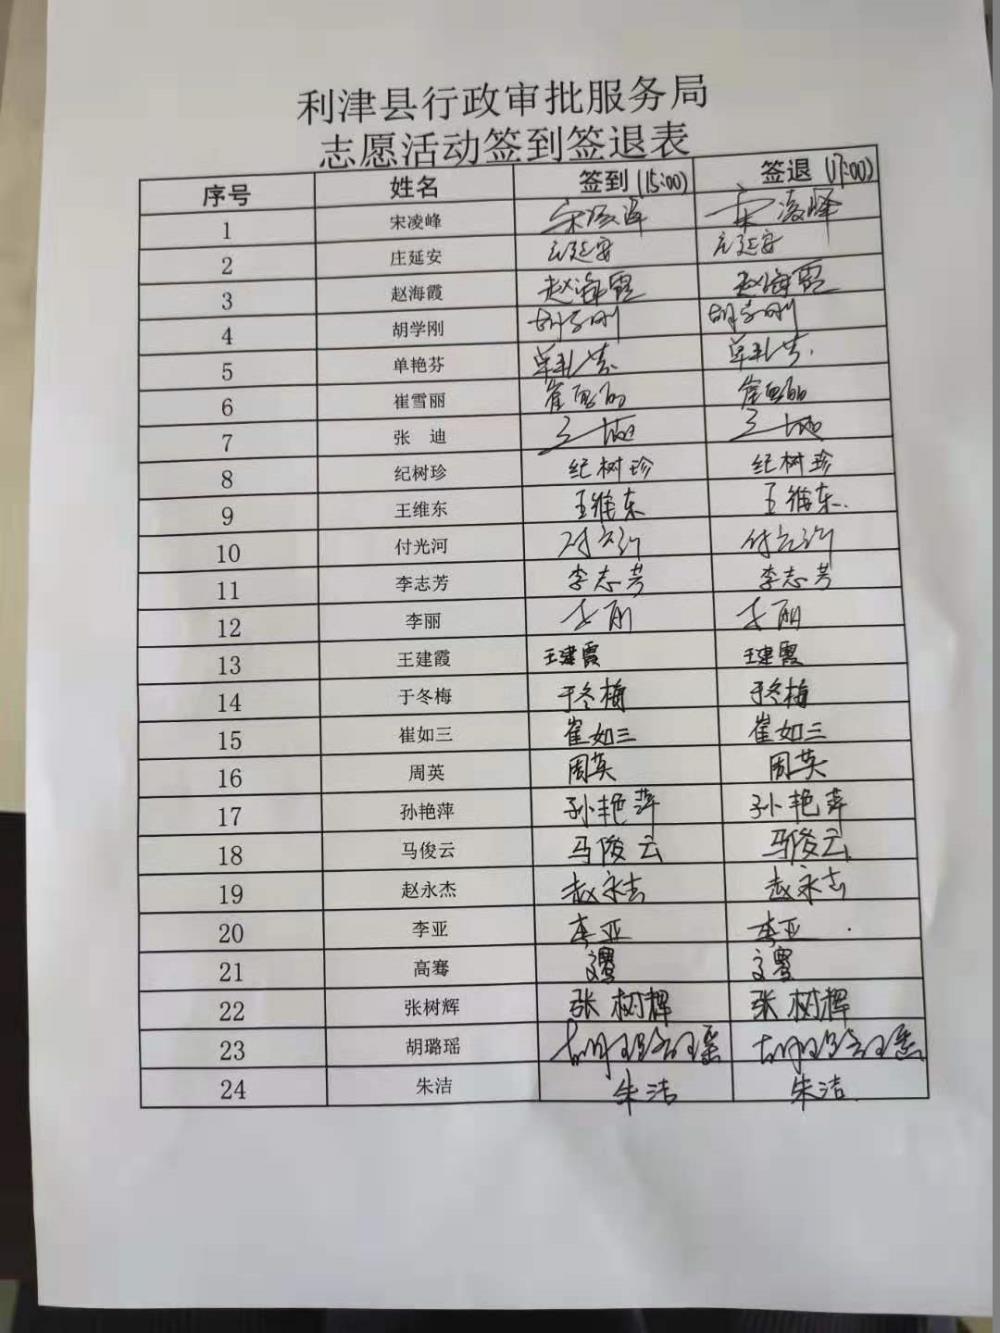 利津县行政审批服务局
志愿活动签到签退表
序号 姓名 签到(15:00) 签退(17:00)
1 宋凌峰 宋凌峰 宋凌峰
2 庄延安 庄延安 庄延安
3 赵海霞 赵海霞 赵海霞
4 胡学刚 胡学刚 胡学刚
5 单艳芬
6 崔雪丽 崔雪丽 崔雪丽
7 张 迪
8 纪树珍 纪树珍 纪树珍
9 王维东 王维东 王维东
10 付光河 付光河 付光河
11 李志芳 李志芳 李志芳
12 李丽 李丽 李丽
13 王建霞 王建霞 王建霞
14 于冬梅 于冬梅 于冬梅
15 崔如三 崔如三 崔如三
16 周英 周英 周英
17 孙艳萍 孙艳萍 孙艳萍
18 马俊云 马俊云 马俊云
19 赵永杰 赵永杰 赵永杰
20 李亚 李亚 李亚
21 高骞
22 张树辉 张树辉 张树辉
23 胡璐瑶 胡璐瑶 胡璐瑶
24 朱洁 朱洁 朱洁